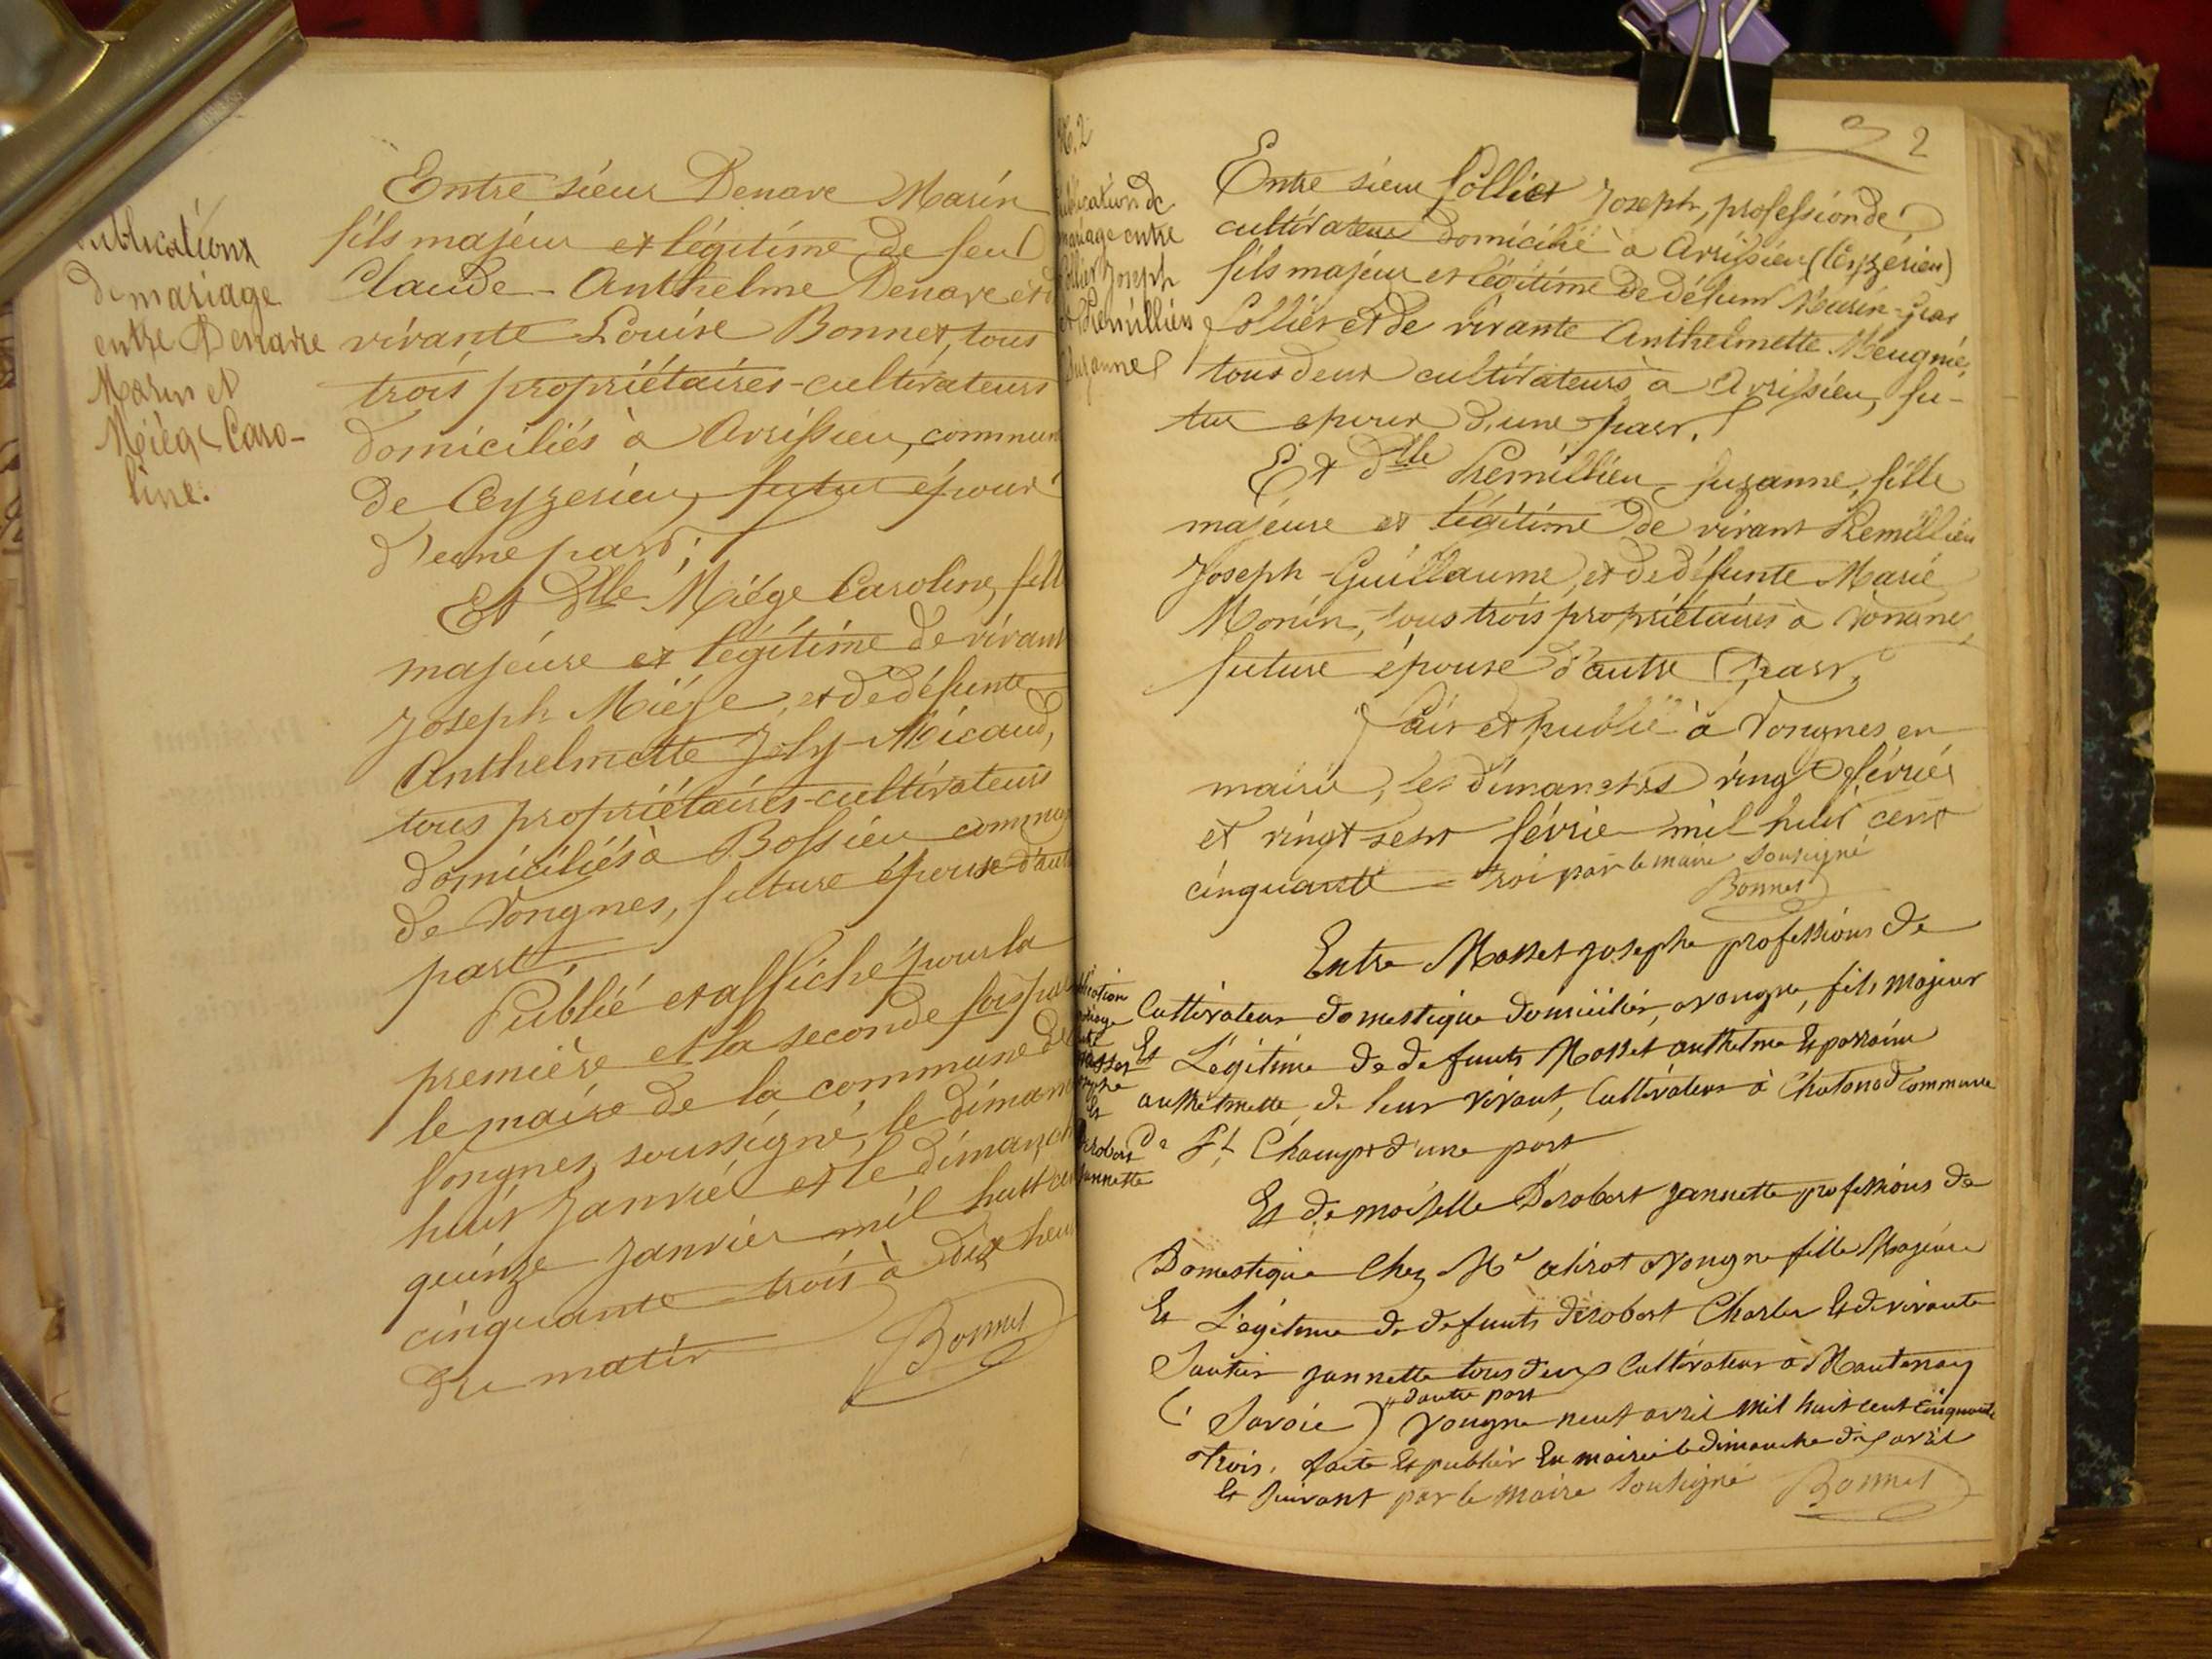 Publications
de mariage
entre Denare
Marin et
Miége Caro-
line.
Entre sieur Denare Marin
fils majeur et légitime de feu
Claude-Anthelme Denare et d
vivante Louise Bonnet, tous
trois propriétaires-cultivateurs
domiciliés à Avrissieu, commun
de Ceyzerieu, futur époux
d'une part;
Et Dlle Miége Caroline, fill
majeure et légitime de vivant
Joseph Miége, et de défunte
Anthelmette Joly-Micaud,
tous propriétaires-cultivateurs
domiciliés à Bossieu commun
de Vongnes, future épouse d'aut
part.
Publié et affiché pour la
première et la seconde fois par
le maire de la commune de
Vongnes, soussigné, le diman
huit janvier et le dimanch
quinze janvier mil huit cen
cinquante trois à dix heu
du matin
Bonnet
2
N. 2
Publication de
mariage entre
Follier Joseph
et Premillieu
Suzanne
Entre sieur Follier Joseph, profession de
cultivateur domicilié à Avrissieu (Ceyzérieu)
fils majeur et légitime de défunt Marin-
Follier et de vivante Anthelmette Meugnié,
tous deux cultivateurs à Avrissieu, fu-
tur epoux d'une part.
Et Dlle Premillieu Suzanne, fille
majeure et légitime de vivant Premillieu
Joseph-Guillaume, et de défunte Marie
Monin, tous trois propriétaires à Vongne,
future épouse d'autre part.
Fait et publié à Vongnes en
mairie, les dimanches vingt février
et vingt-sept février mil huit cent
cinquante-trois par le maire Sousigné
Bonnet
Publication
mariage
entre
Masset
Joseph
Et
Dérobert
Jannette
Entre Masset Joseph professions de
Cultivateur domestique domicilier, a vongne, fils majeur
Et Légitime de defunts Masset anthelme Et
anthelmette, de leur vivant, Cultivateur à Chatonod Commune
De St Champ d'une part
Et demoiselle Dérobert Jannette professions de
Domestique Chez Mr a Vongne fille Majeure
Et Légitime de defunts dérobert Charles Et de vivante
Sautier Jannette tous deux Cultivateur à
(Savoie) d'autre part Vongne neuf avril mil huit cent cinquante
trois, faite Et publier En mairie le dimanche dix avril
Et Suivant par le maire Sousigné Bonnet